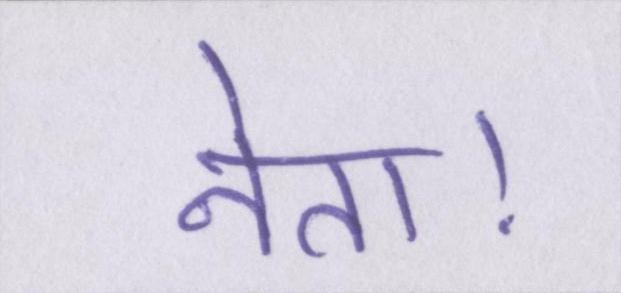 नेता!